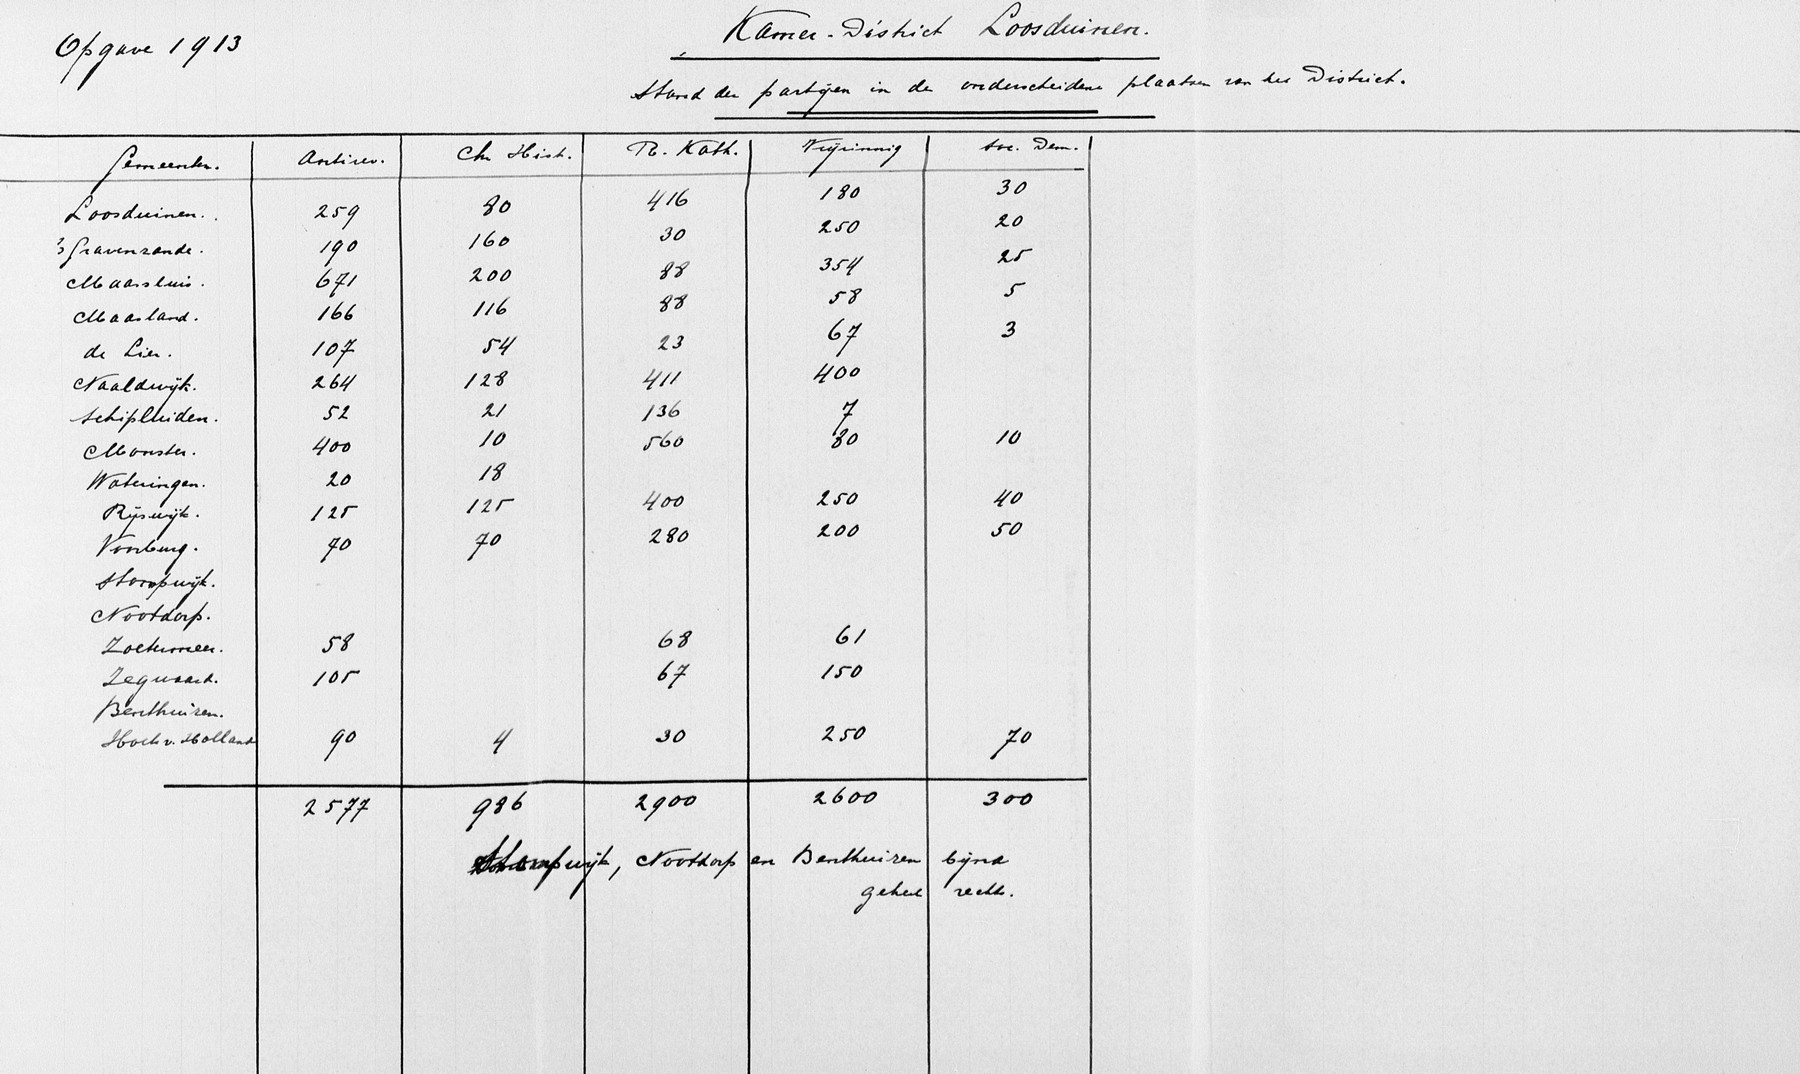 Opgave 1913
Kamer-District Loosduinen.
Stand der partijen in de onderscheidene plaatsen van het District.
Gemeenten. Antirev. Chr. Hist. R. Kath. Vrijzinnig Soc. Dem.
Loosduinen. 259 80 416 180 30
's Gravenzande. 190 160 30 250 20
Maassluis. 671 200 88 354 25
Maasland. 166 116 88 58 5
de Lier. 107 54 23 67 3
Naaldwijk. 264 128 411 400
Schipluiden. 52 21 136 7
Monster. 400 10 560 80 10
Wateringen. 20 18
Rijswijk. 125 125 400 250 40
Voorburg. 70 70 280 200 50
Stompwijk.
Nootdorp.
Zoetermeer. 58 68 61
Zegwaard. 105 67 150
Benthuizen.
Hoek v. Holland 90 4 30 250 70
2577 986 2900 2600 300
Stompwijk, Nootdorp en Benthuizen bijna
geheel rechts.